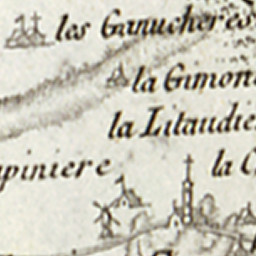 les Ganucheres
la Gimon
la Litaudie
piniere
la C